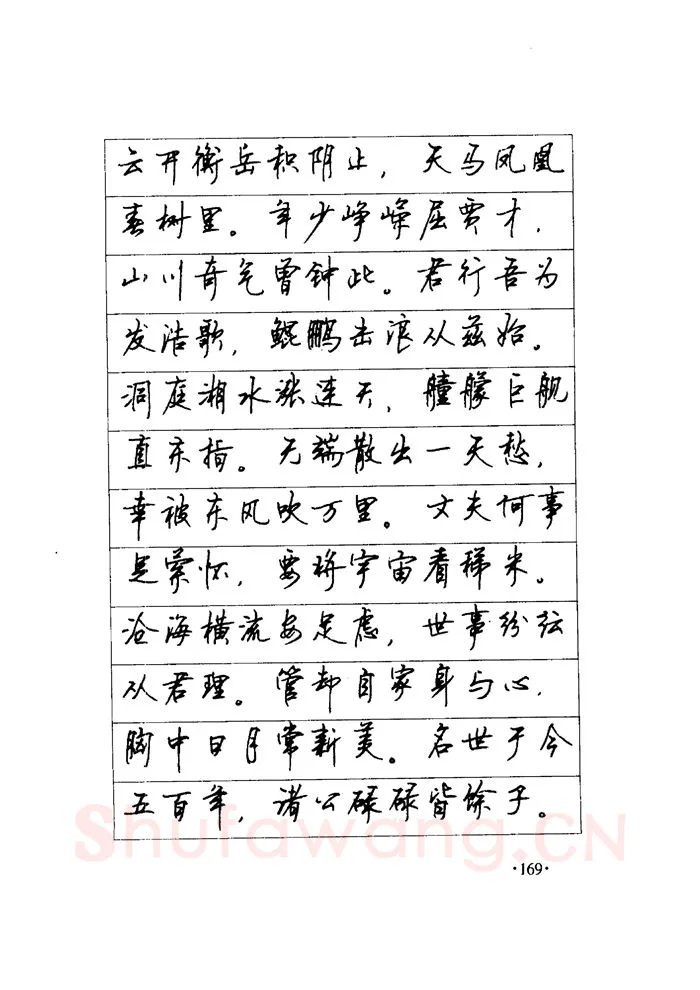 云开衡岳积阴止，天马凤凰
春树里。年少峥嵘屈贾才，
山川奇气曾钟此。君行吾为
发浩歌，鲲鹏击浪从兹始。
洞庭湘水涨连天，艟艨巨舰
直东指。无端散出一天愁，
幸被东风吹万里。丈夫何事
足萦怀，要将宇宙看稊米。
沧海横流安足虑，世事纷纭
从君理。管却自家身与心，
胸中日月常新美。名世于今
五百年，诸公碌碌皆馀子。
Shufawang.CN
·169·